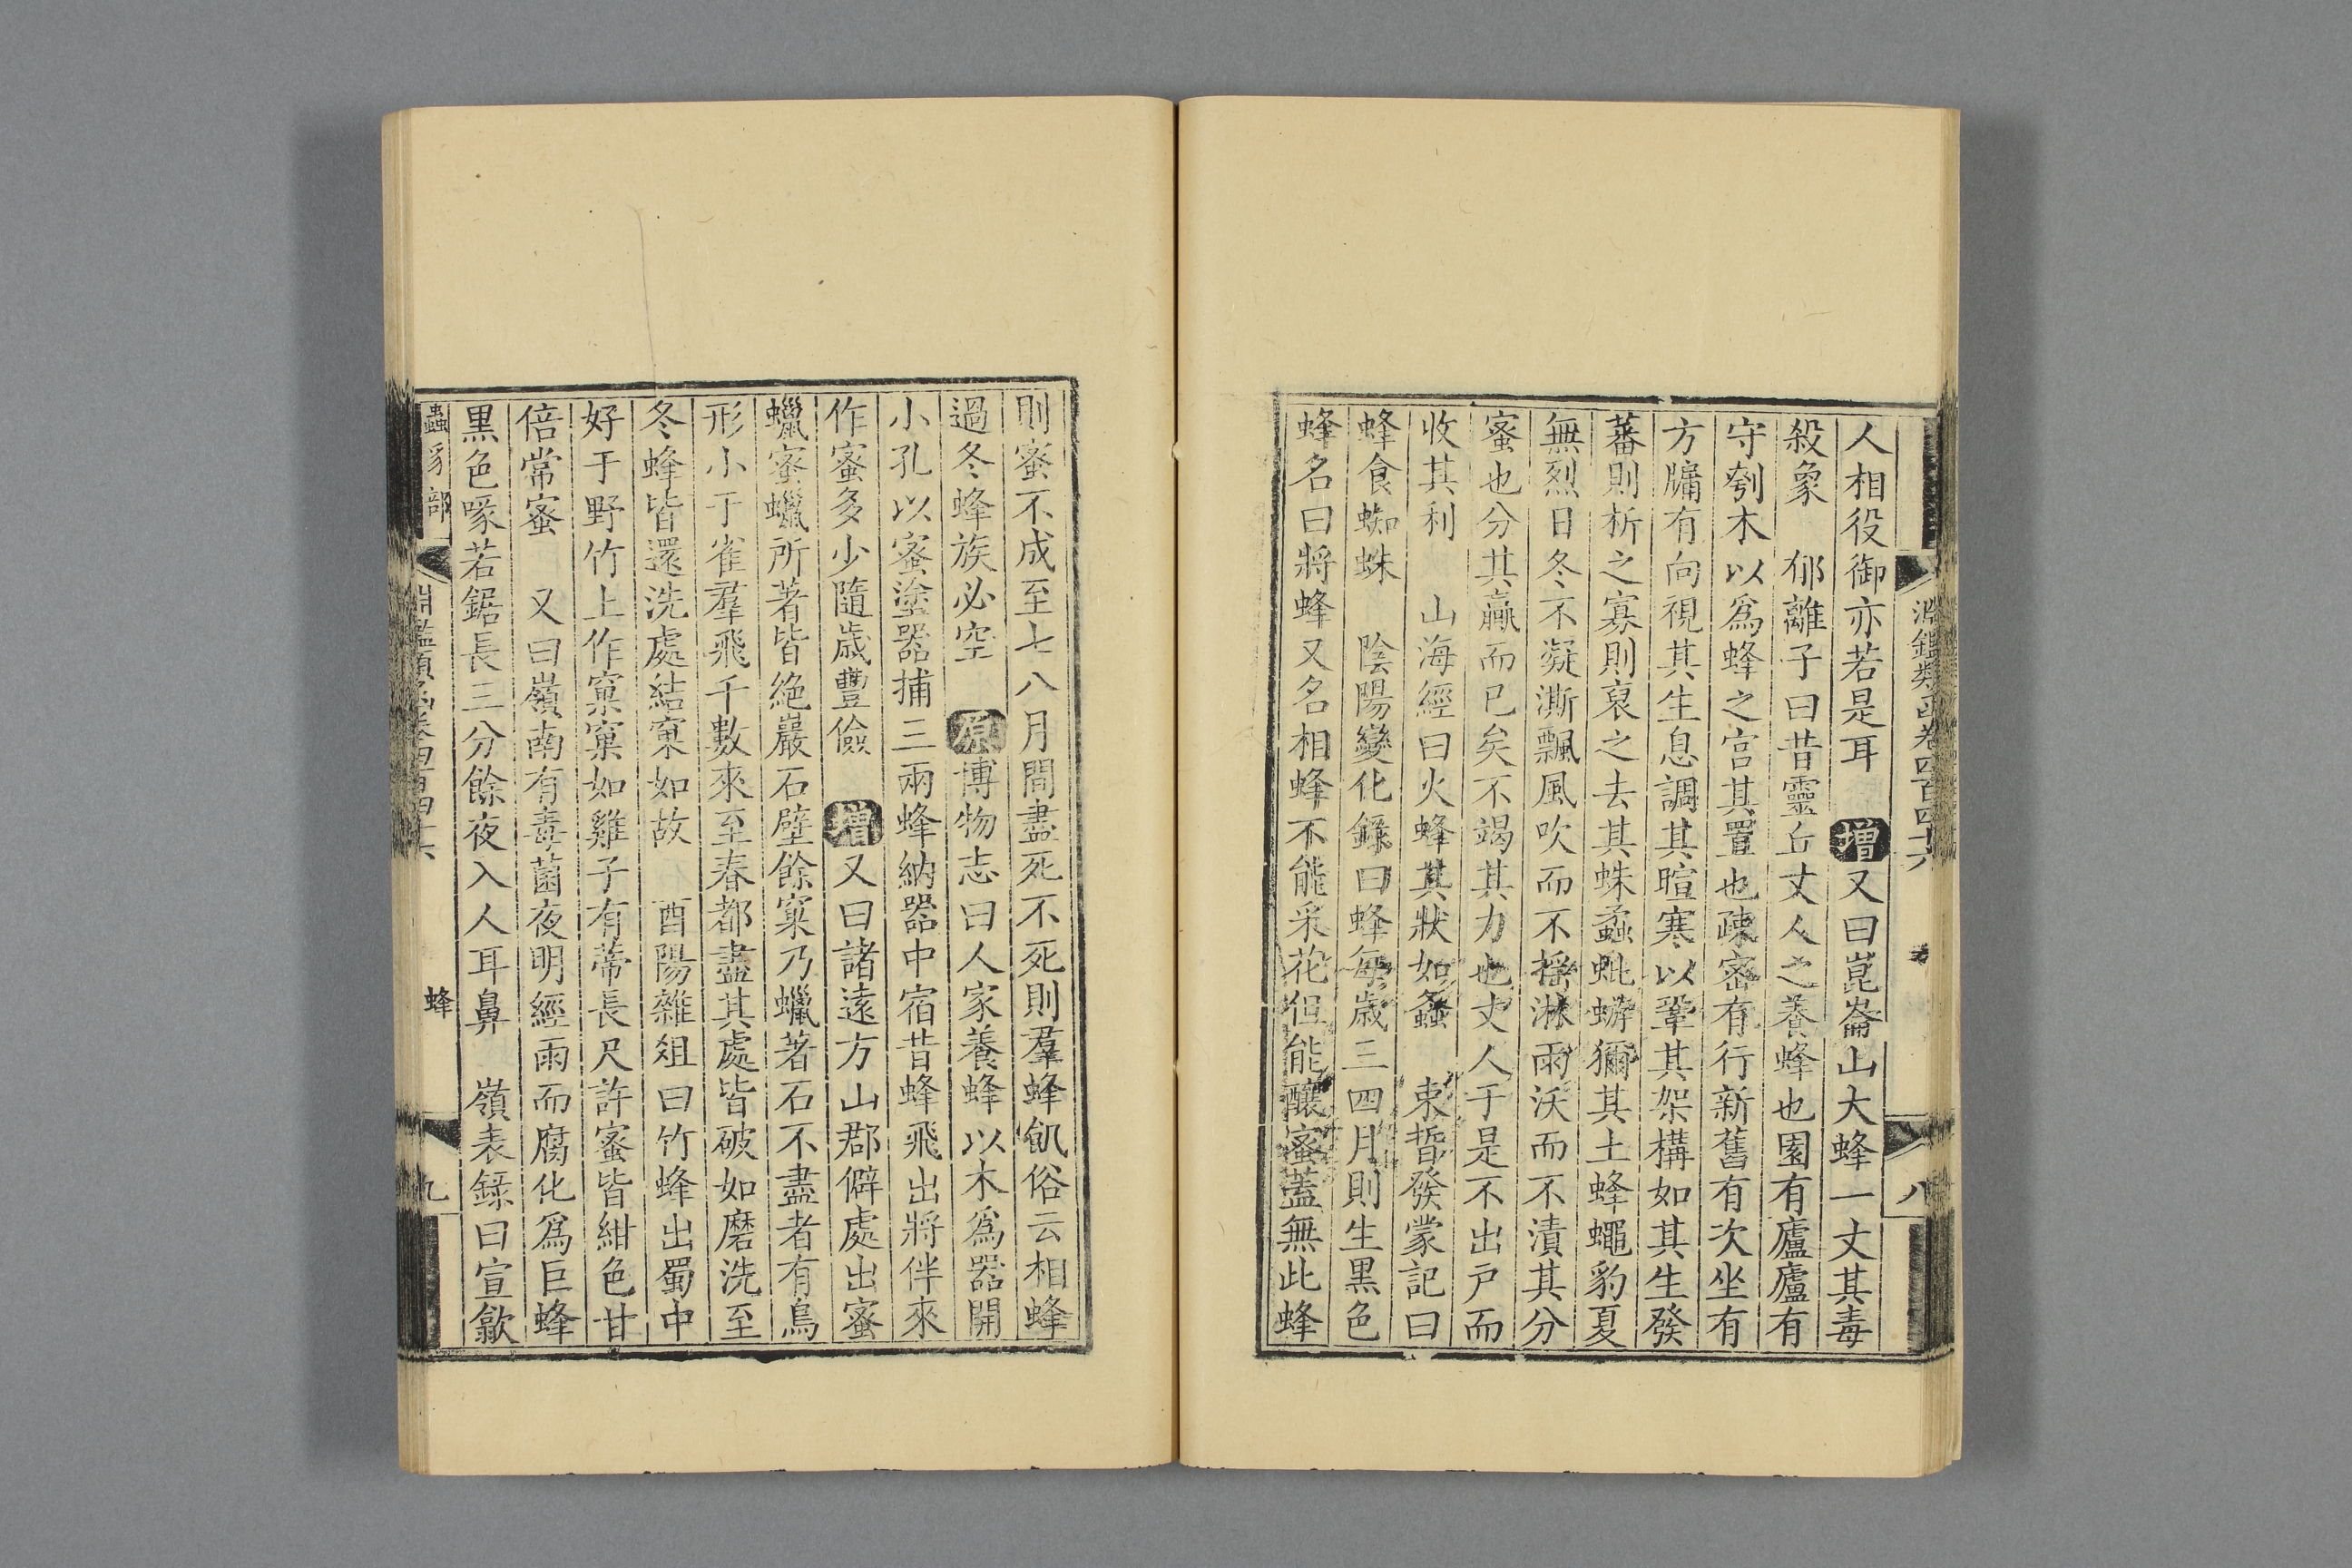 淵鑑類函卷四百四十六
八
人相役御亦若是耳 增又曰崑崙山大蜂一丈其毒
殺象 郁離子曰昔靈丘丈人之養蜂也園有廬廬有
守刳木以為蜂之宮其置也疎密有行新舊有次坐有
方牖有向視其生息調其暄寒以鞏其架構如其生發
蕃則析之寡則裒之去其蛛蟊蚍蜉獮其土蜂蠅豹夏
無烈日冬不凝澌飄風吹而不搖淋雨沃而不漬其分
蜜也分其贏而已矣不竭其力也丈人于是不出戸而
收其利 山海經曰火蜂其狀如螽 束晳發蒙記曰
蜂食蜘蛛 陰陽變化錄曰蜂每歲三四月則生黑色
蜂名曰將蜂又名相蜂不能采花但能釀蜜蓋無此蜂
則蜜不成至七八月間盡死不死則羣蜂飢俗云相蜂
過冬蜂族必空 原博物志曰人家養蜂以木為器開
小孔以蜜塗器捕三兩蜂納器中宿昔蜂飛出將伴來
作蜜多少隨歲豐儉 增又曰諸遠方山郡僻處出蜜
蠟蜜蠟所著皆絶巖石壁餘窠乃蠟著石不盡者有鳥
形小于雀羣飛千數來至春都盡其處皆破如磨洗至
冬蜂皆還洗處結窠如故 酉陽雜俎曰竹蜂出蜀中
好于野竹上作窠窠如雞子有蒂長尺許蜜皆紺色甘
倍常蜜 又曰嶺南有毒菌夜明經雨而腐化為巨蜂
黑色喙若鋸長三分餘夜入人耳鼻 嶺表錄曰宣歙
蟲豸部
淵鑑類函卷四百四十六
蜂
九